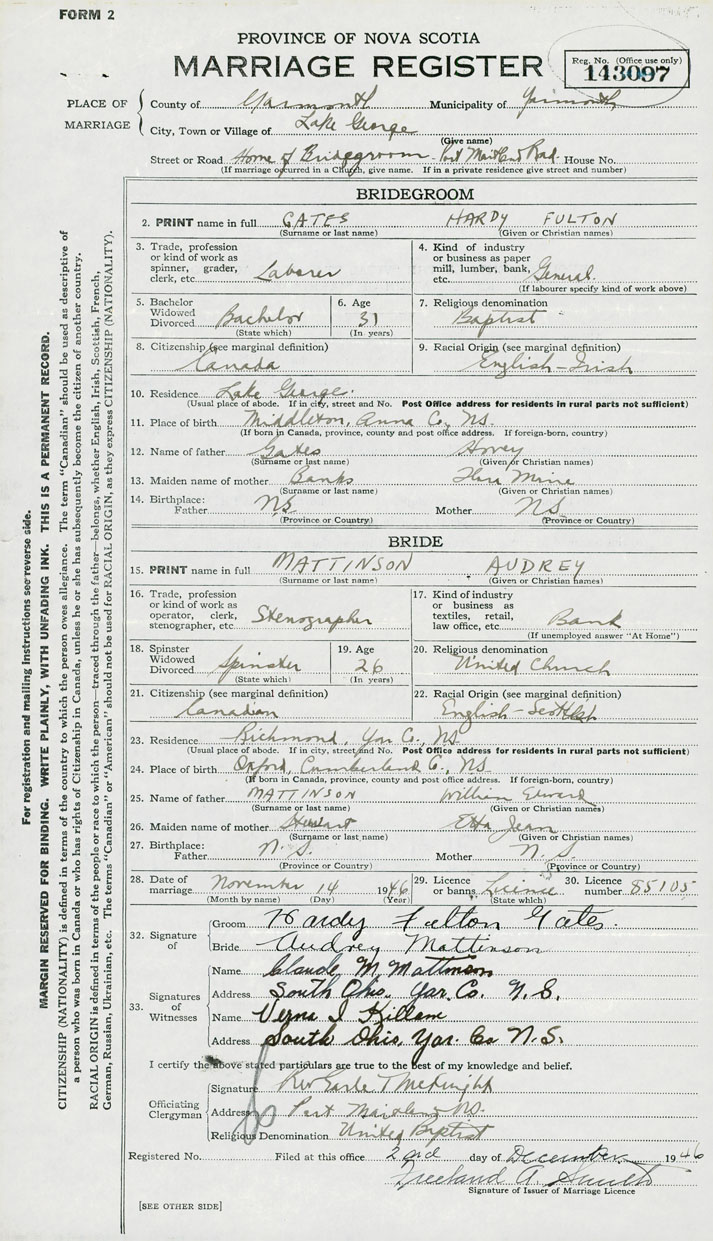 FORM 2
PROVINCE OF NOVA SCOTIA
MARRIAGE REGISTER
Reg. No. (Office use only)
143097
PLACE OF MARRIAGE
County of Yarmouth Municipality of Yarmouth
City, Town or Village of Lake George
(Give name)
Street or Road Home of Bridegroom - Port Maitland Road. House No.
(If marriage occurred in a Church, give name. If in a private residence give street and number)
BRIDEGROOM
2. PRINT name in full GATES HARDY FULTON
(Surname or last name) (Given or Christian names)
3. Trade, profession or kind of work as spinner, grader, clerk, etc. Laborer
4. Kind of industry or business as paper mill, lumber, bank, etc. General.
(If labourer specify kind of work above)
5. Bachelor Widowed Divorced Bachelor
(State which)
6. Age 31
(In years)
7. Religious denomination
Baptist
8. Citizenship (see marginal definition)
Canada
9. Racial Origin (see marginal definition)
English-Irish
10. Residence Lake George.
(Usual place of abode. If in city, street and No. Post Office address for residents in rural parts not sufficient)
11. Place of birth Middleton, Anna Co., NS.
(If born in Canada, province, county and post office address. If foreign-born, country)
12. Name of father Gates Hovey
(Surname or last name) (Given or Christian names)
13. Maiden name of mother Banks
(Surname or last name) (Given or Christian names)
14. Birthplace: Father NS Mother NS
(Province or Country) (Province or Country)
BRIDE
15. PRINT name in full MATTINSON AUDREY
(Surname or last name) (Given or Christian names)
16. Trade, profession or kind of work as operator, clerk, stenographer, etc. Stenographer
17. Kind of industry or business as textiles, retail, law office, etc. Bank
(If unemployed answer "At Home")
18. Spinster Widowed Divorced Spinster
(State which)
19. Age 26
(In years)
20. Religious denomination
United Church
21. Citizenship (see marginal definition)
Canadian
22. Racial Origin (see marginal definition)
English-Scottish
23. Residence Richmond, Yar Co., NS
(Usual place of abode. If in city, street and No. Post Office address for residents in rural parts not sufficient)
24. Place of birth Oxford, Cumberland Co., NS.
(If born in Canada, province, county and post office address. If foreign-born, country)
25. Name of father MATTINSON William Edward
(Surname or last name) (Given or Christian names)
26. Maiden name of mother Etta Jean
(Surname or last name) (Given or Christian names)
27. Birthplace: Father N.S. Mother N.S.
(Province or Country) (Province or Country)
28. Date of marriage November 14 1946
(Month by name) (Day) (Year)
29. Licence or banns Licence
(State which)
30. Licence number 85105
32. Signature of
Groom Hardy Fulton Gates.
Bride Audrey Mattinson
33. Signatures of Witnesses
Name Claude M. Mattinson
Address South Ohio, Yar. Co. N.S.
Name Verna I Killam
Address South Ohio, Yar. Co N.S.
I certify the above stated particulars are true to the best of my knowledge and belief.
Officiating Clergyman
Signature Rev Earle T McKnight
Address Port Maitland NS.
Religious Denomination United Baptist
Registered No. Filed at this office 2nd day of December 1946
Freeland A.
Signature of Issuer of Marriage Licence
[SEE OTHER SIDE]
For registration and mailing instructions see reverse side.
MARGIN RESERVED FOR BINDING. WRITE PLAINLY, WITH UNFADING INK. THIS IS A PERMANENT RECORD.
CITIZENSHIP (NATIONALITY) is defined in terms of the country to which the person owes allegiance. The term "Canadian" should be used as descriptive of
a person who was born in Canada or who has rights of Citizenship in Canada, unless he or she has subsequently become the citizen of another country.
RACIAL ORIGIN is defined in terms of the people or race to which the person—traced through the father—belongs, whether English, Irish, Scottish, French,
German, Russian, Ukrainian, etc. The terms "Canadian" or "American" should not be used for RACIAL ORIGIN, as they express CITIZENSHIP (NATIONALITY).